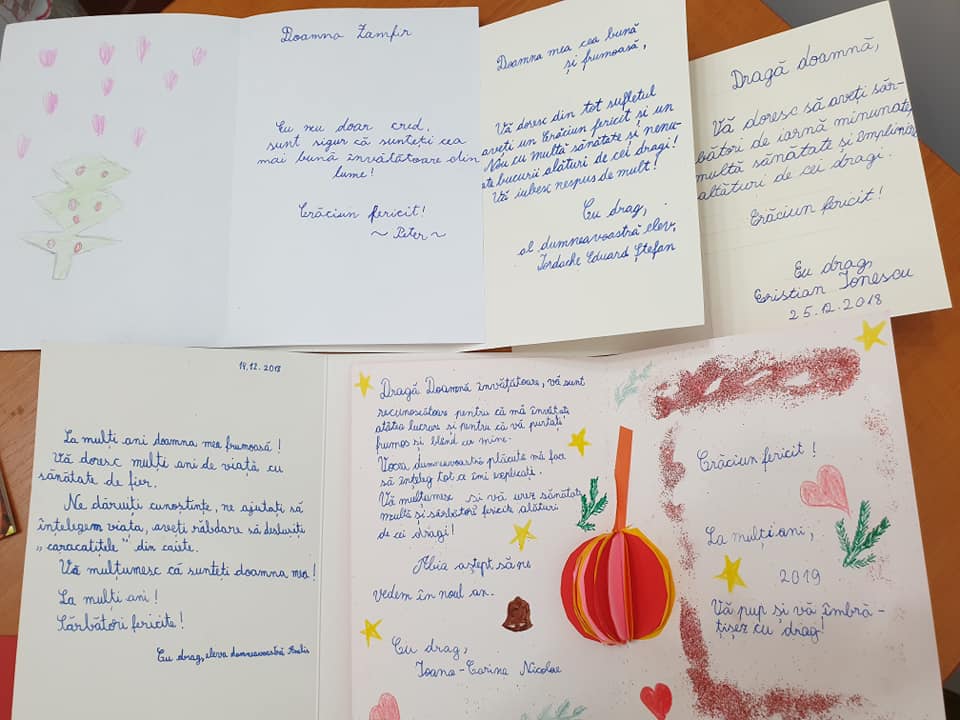 Doamna Zamfir
Eu nu doar cred,
sunt sigur că sunteți cea
mai bună învălătoare din
lume!
Crăciun fericit!
~ Peter ~
Doamna mea cea bună
și frumoasă,
Vă doresc din tot sufletul
aveți un Crăciun fericit și un
Nou cu multă sănătate și nenu-
te bucurii alături de cei dragi!
Vă iubesc nespus de mult!
Cu drag,
al dumneavoastră elev,
Iordache Eduard Ștefan
Dragă doamnă,
Vă doresc să aveți săr-
bători de iarnă minunate,
multă sănătate și împlinire
alături de cei dragi.
Crăciun fericit!
Cu drag,
Cristian Ionescu
25.12.2018
14.12.2018
La mulți ani doamna mea frumoasă!
Vă doresc mulți ani de viață cu
sănătate de fier.
Ne dăruiți cunoștințe, ne ajutați să
înțelegem viața, aveți răbdare să deslușiți
„caracatițele" din caiete.
Vă mulțumesc că sunteți doamna mea!
La mulți ani!
Sărbători fericite!
Cu drag, eleva dumneavoastră
Dragă Doamnă învățătoare, vă sunt
recunoscătoare pentru că mă învățați
atâtea lucruri și pentru că vă purtați
frumos și blând cu mine.
Vocea dumneavoastră plăcută mă face
să înțeleg tot ce îmi explicați.
Vă mulțumesc și vă urez sănătate
multă și sărbători fericite alături
de cei dragi!
Abia aștept să ne
vedem în noul an.
Cu drag,
Ioana-Carina Nicolae
Crăciun fericit!
La mulți ani,
2019
Vă pup și vă îmbră-
țișez cu drag!